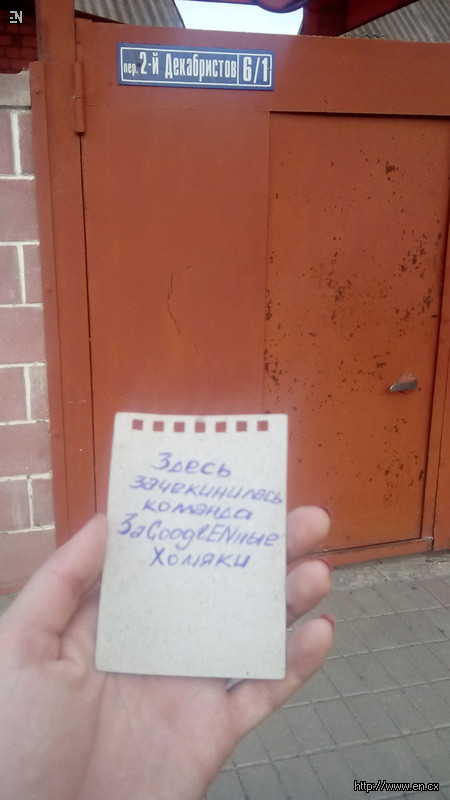 EN
пер. 2-й Декабристов 6/1
Здесь
зачекинилась
команда
ЗаGooglENные
Хомяки
http://www.en.cx